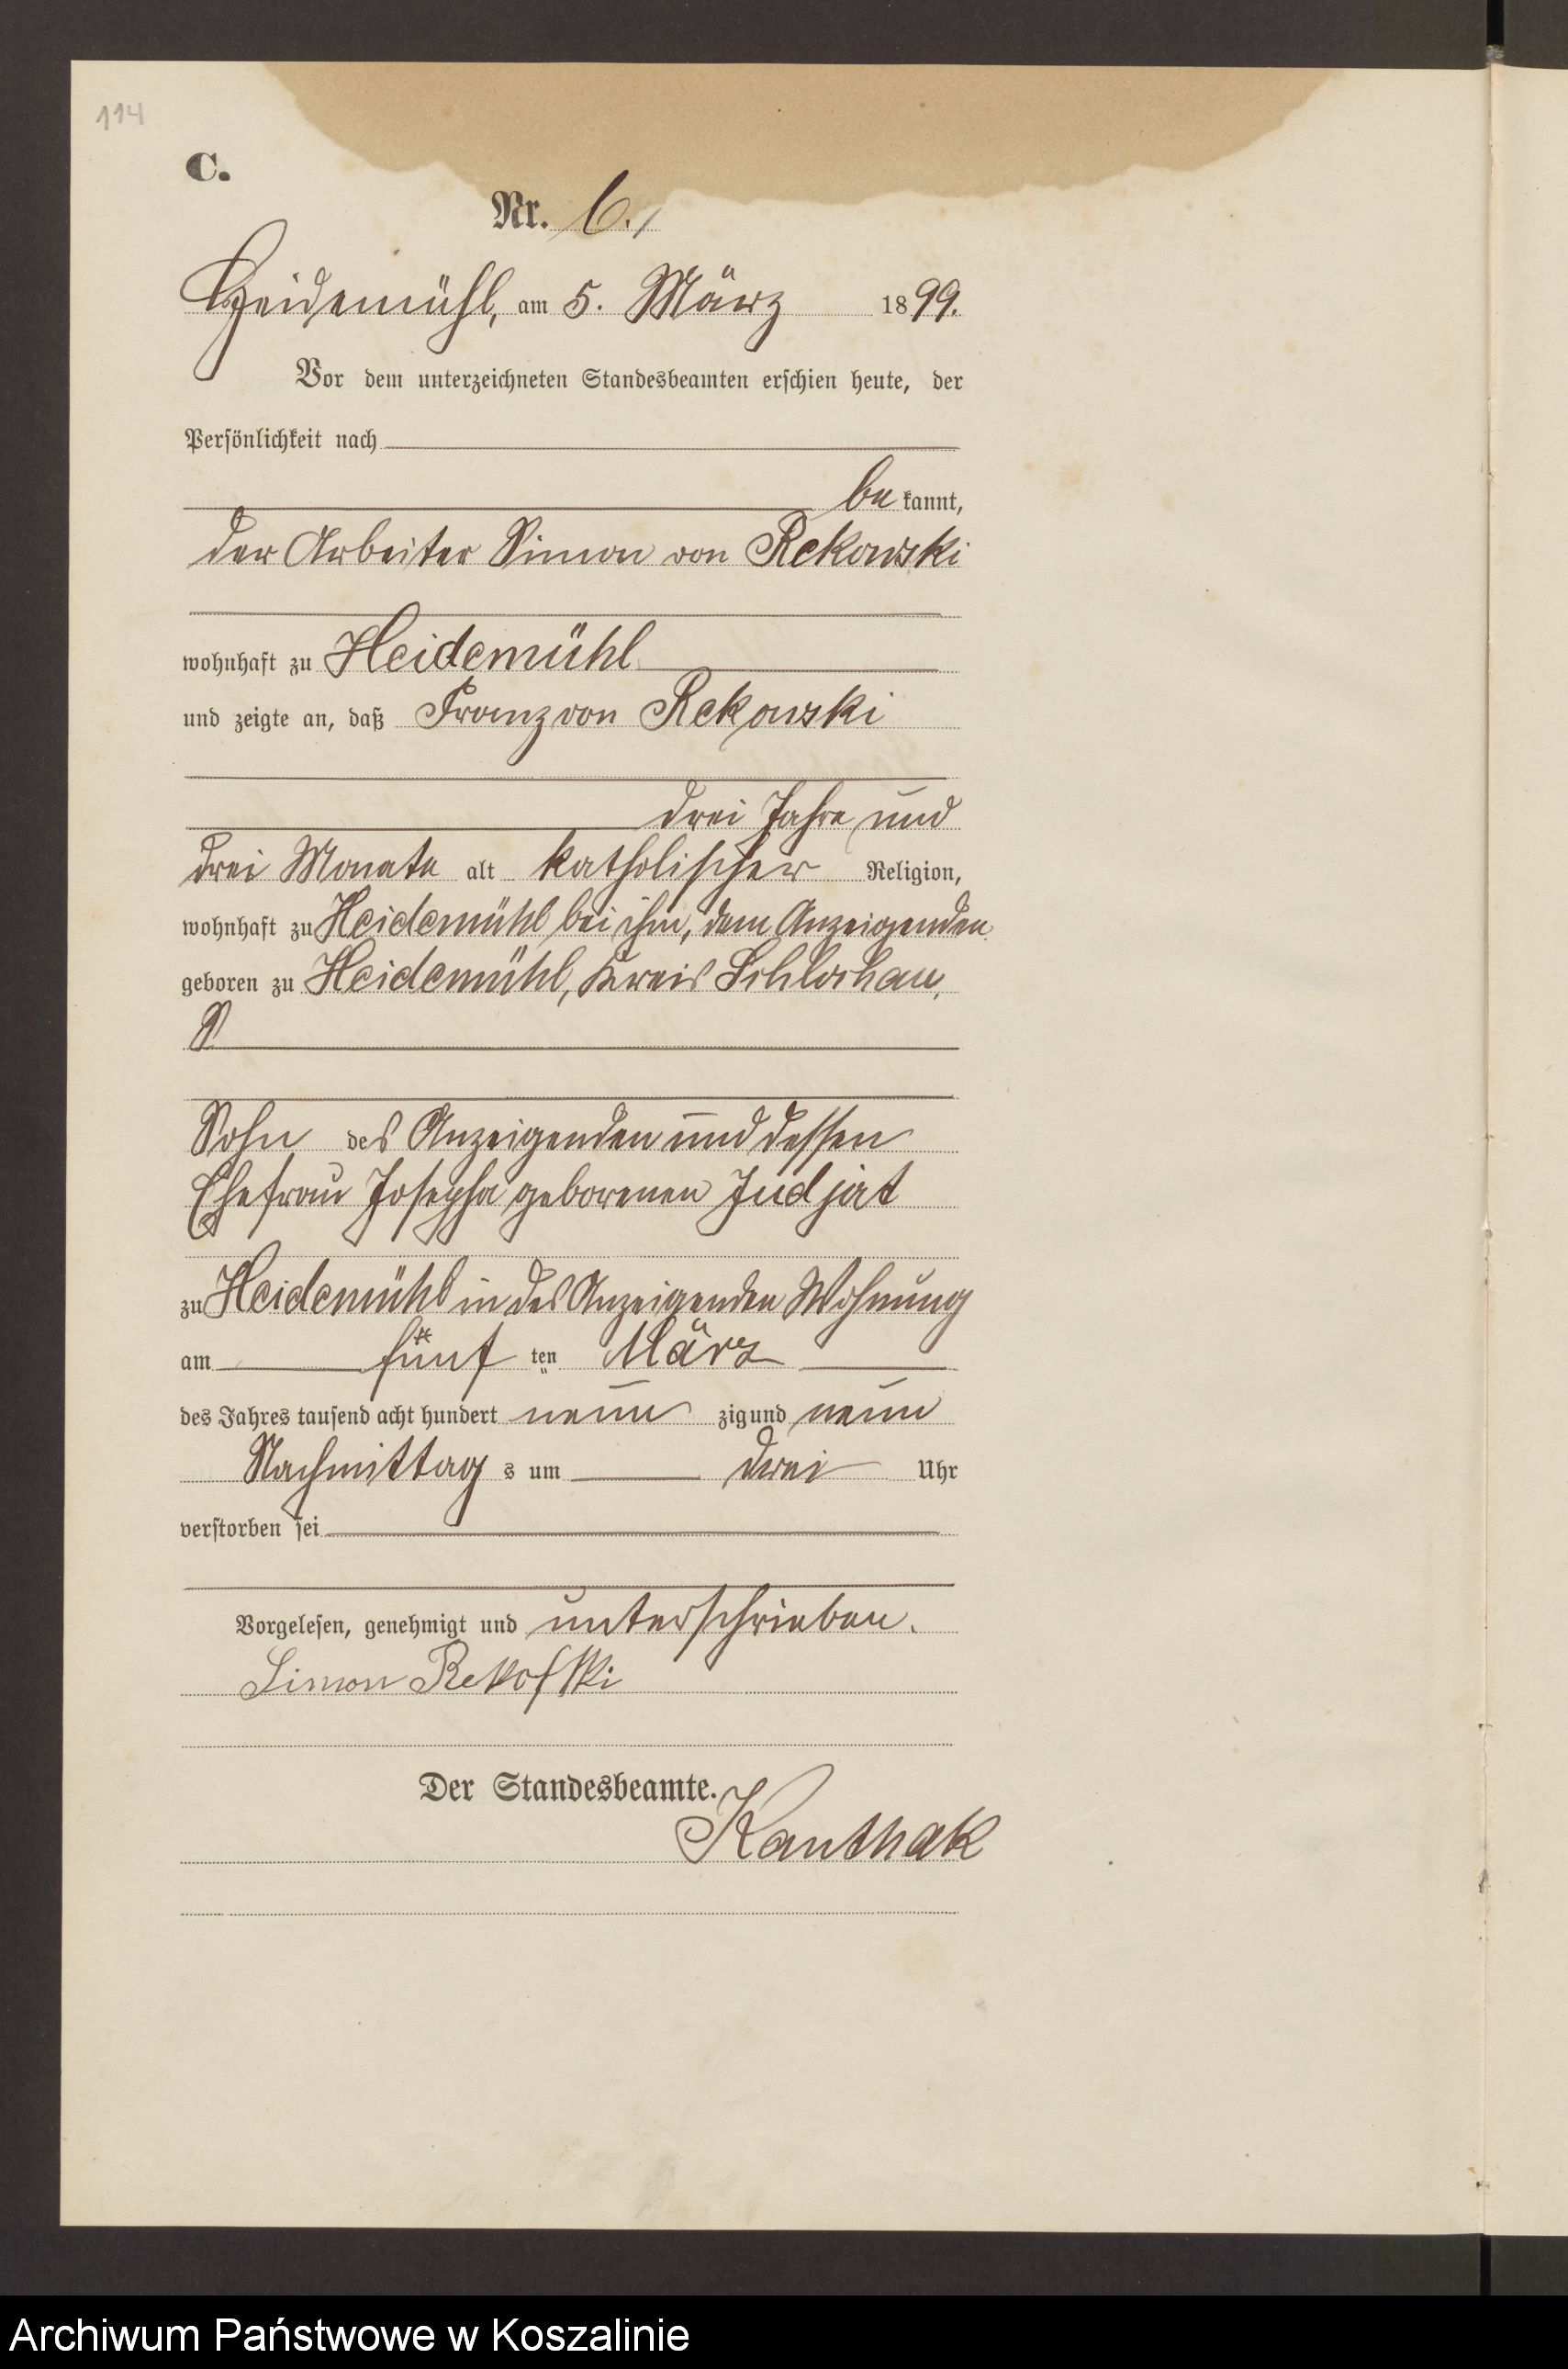 114
C.
Nr. 6.
Heidemühl, am 5. März 1899.
Vor dem unterzeichneten Standesbeamten erschien heute, der
Persönlichkeit nach
be kannt,
der Arbeiter Simon von Rekowski
wohnhaft zu Heidemühl
und zeigte an, daß Franz von Rekowski
drei Jahre und
drei Monate alt katholischer Religion,
wohnhaft zu Heidemühl bei ihm, dem Anzeigenden
geboren zu Heidemühl, Kreis Schlochau,
S
Sohn des Anzeigenden und dessen
Ehefrau Josepha geborenen Judjat
zu Heidemühl in des Anzeigenden Wohnung
am fünf ten März
des Jahres tausend acht hundert neun zig und neun
Nachmittag s um drei Uhr
verstorben sei
Vorgelesen, genehmigt und unterschrieben.
Simon Rekofski
Der Standesbeamte.
Kanthak
Archiwum Państwowe w Koszalinie